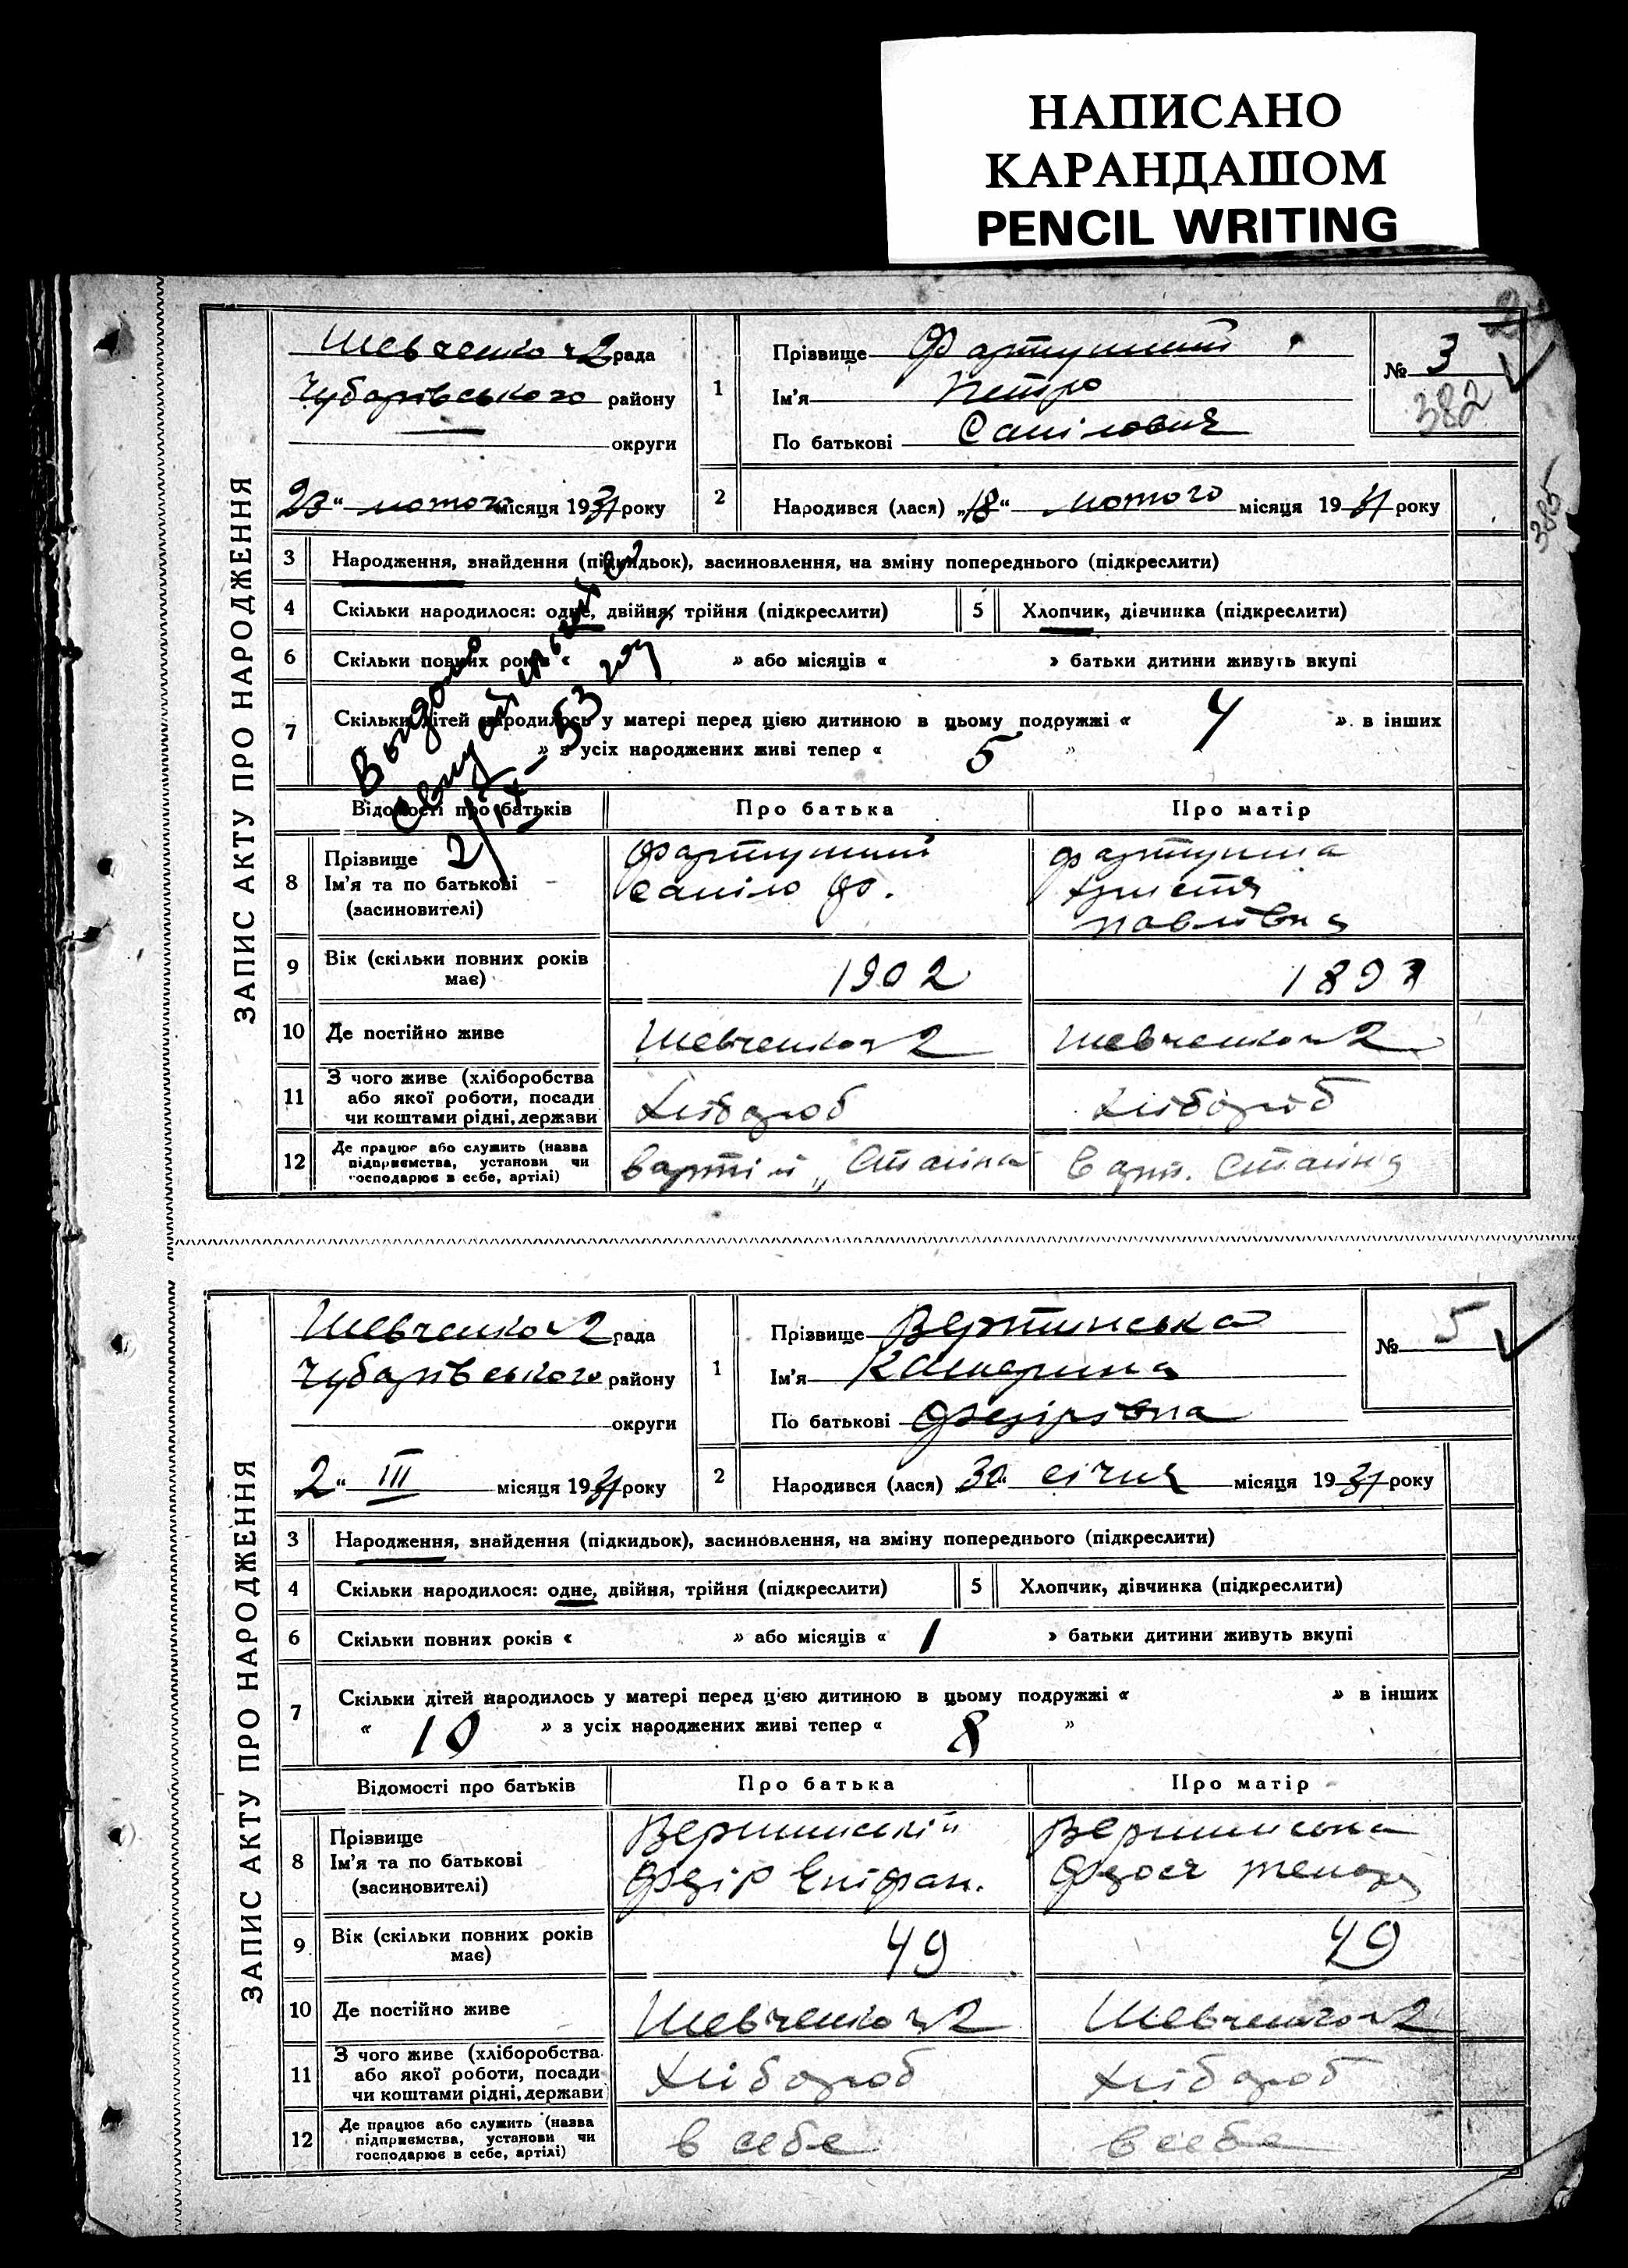 НАПИСАНО
КАРАНДАШОМ
PENCIL WRITING
ЗАПИС АКТУ ПРО НАРОДЖЕННЯ
Шевченко №2 рада
Чубарівського району
округи
23 " лютого місяця 1931 року
1 Прізвище Фартушний
Ім'я Петро
По батькові Савілович
№ 3
382
385
2 Народився (лася) „18" лютого місяця 1931 року
3 Народження, знайдення (підкидьок), засиновлення, на зміну попереднього (підкреслити)
4 Скільки народилося: одне, двійня, трійня (підкреслити)
5 Хлопчик, дівчинка (підкреслити)
6 Скільки повних років « » або місяців « » батьки дитини живуть вкупі
7 Скільки дітей народилось у матері перед цією дитиною в цьому подружжі « 4 » в інших
» з усіх народжених живі тепер « 5 »
Выдано
2/IX-53 году
Відомості про батьків Про батька Про матір
8 Прізвище
Ім'я та по батькові
(засиновителі)
Фартушний
Ф.
Фартушна
Христя
Павлівна
9 Вік (скільки повних років
має)
1902
10 Де постійно живе Шевченко №2 Шевченко №2
11 З чого живе (хліборобства
або якої роботи, посади
чи коштами рідні, держави
Хлібороб Хлібороб
12 Де працює або служить (назва
підприємства, установи чи
господарює в себе, артілі)
в артілі „Сталіна в арт. Сталіна
ЗАПИС АКТУ ПРО НАРОДЖЕННЯ
Шевченко №2 рада
Чубарівського району
округи
„2" III місяця 1931 року
1 Прізвище Вертинська
Ім'я Катерина
По батькові Федірівна
№ 5
2 Народився (лася) 30" січня місяця 1931 року
3 Народження, знайдення (підкидьок), засиновлення, на зміну попереднього (підкреслити)
4 Скільки народилося: одне, двійня, трійня (підкреслити)
5 Хлопчик, дівчинка (підкреслити)
6 Скільки повних років « » або місяців « 1 » батьки дитини живуть вкупі
7 Скільки дітей народилось у матері перед цією дитиною в цьому подружжі « » в інших
« 10 » з усіх народжених живі тепер « 8 »
Відомості про батьків Про батька Про матір
8 Прізвище
Ім'я та по батькові
(засиновителі)
Вертинський
Федір Епіфан.
Вертинська
Федося
9 Вік (скільки повних років
має)
49 49
10 Де постійно живе Шевченко №2 Шевченко №2
11 З чого живе (хліборобства
або якої роботи, посади
чи коштами рідні, держави
Хлібороб Хлібороб
12 Де працює або служить (назва
підприємства, установи чи
господарює в себе, артілі)
в себе в себе